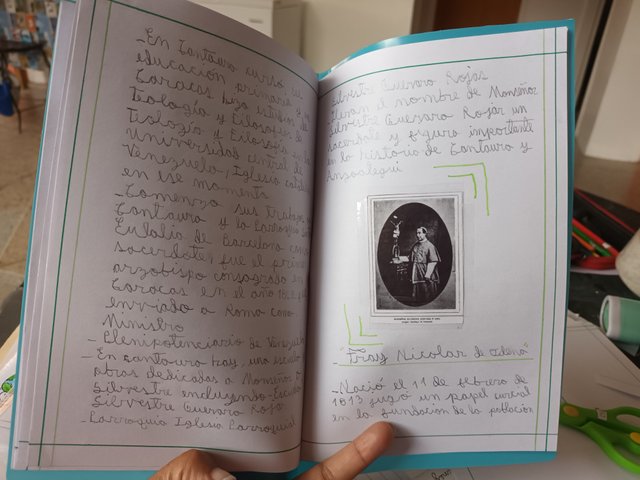 -En Cantauro cursó su
educación primaria y en
Caracas hizo estudios de
Teología y Filosofía de
Teología y Filosofía en la
Universidad central de
Venezuela, Iglesia catól
en ese momento
-Comenzo sus trabajos
Cantauro y la Parroquia
Eulalia de Barcelona como
sacerdote fue el primer
arzobispo consagrado en
Caracas en el año
enviado a Roma como
Ministro
-Plenipotenciario de Venezuela
-En Cantauro hay, una escuela
obras dedicadas a Monseñor
Silvestre incluyendo-Escuela
Silvestre Guevara Rojas
-Parroquia Iglesia Parroquial
Silvestre Guevara Rojas
llevan el nombre de Monseñor
Silvestre Guevara Rojas un
sacerdote y figura importante
en la historia de Cantauro y
Anzoategui
"Fray Nicolas de
-Nació el 11 de febrero de
1613 jugó un papel
en la fundacion de la poblacion